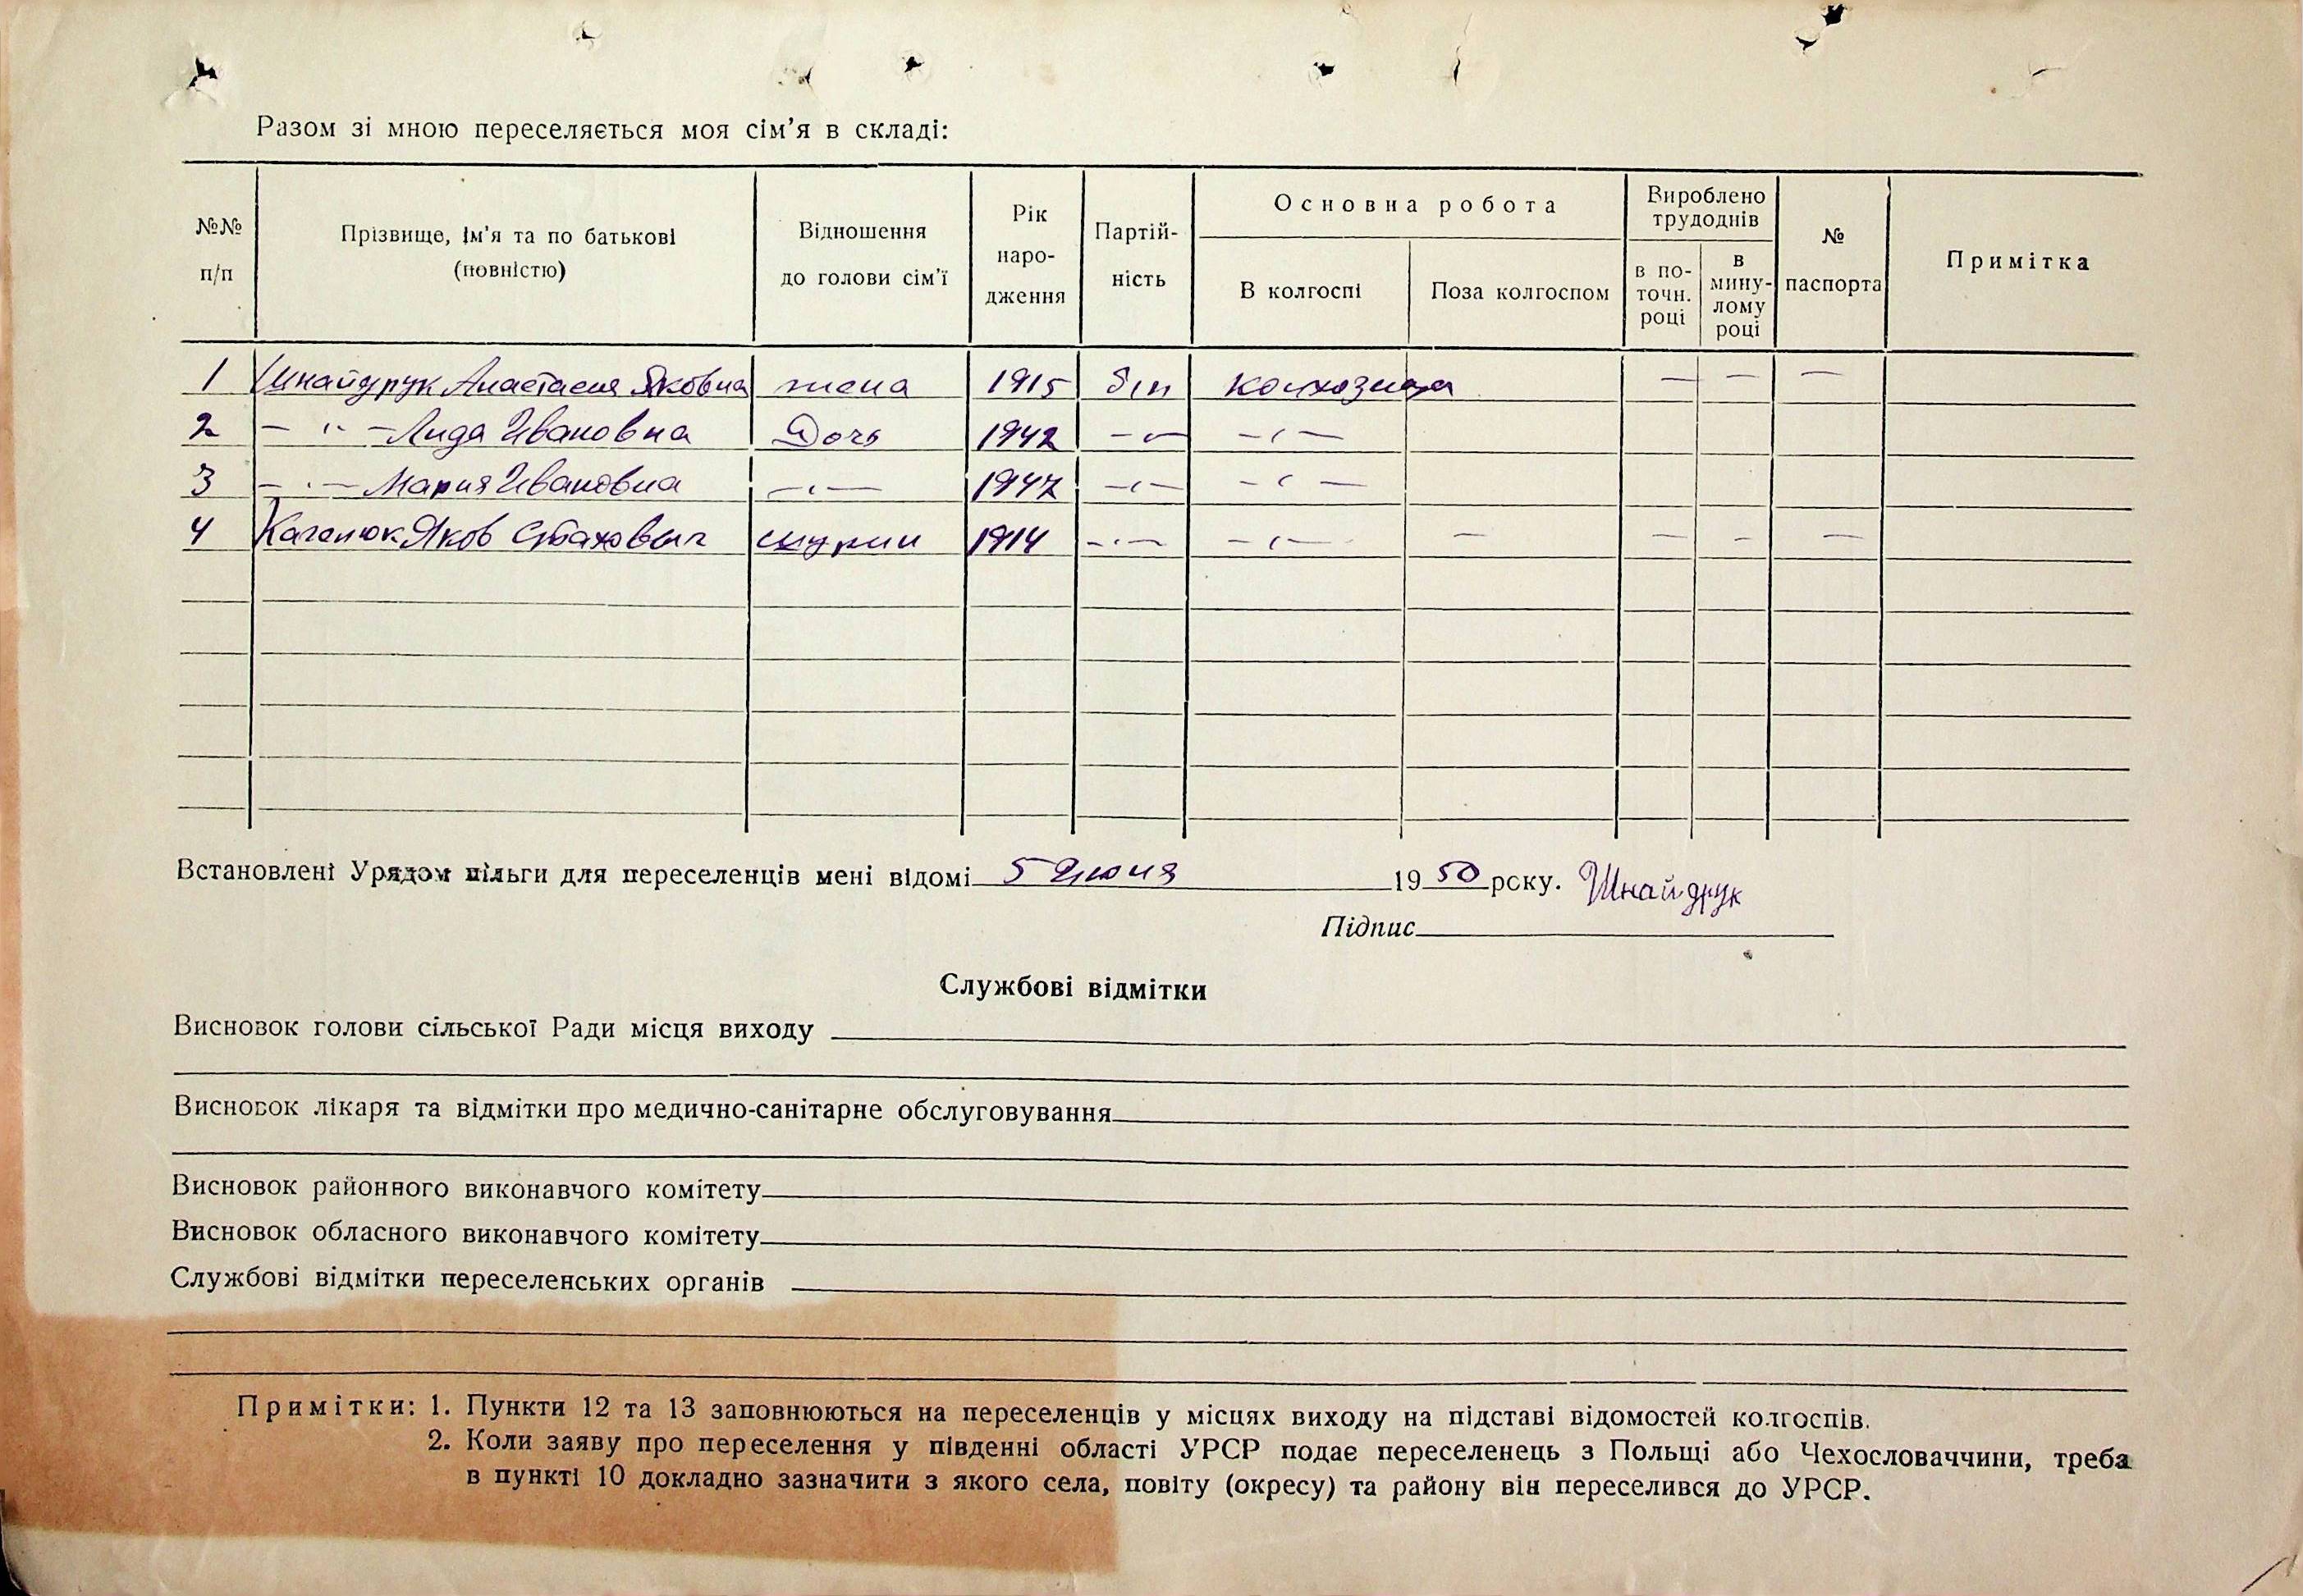 Разом зі мною переселяється моя сім'я в складі:
№№ п/п
Прізвище, ім'я та по батькові (повністю)
Відношення до голови сім'ї
Рік народження
Партійність
Основна робота
В колгоспі
Поза колгоспом
Вироблено трудоднів
в поточн. році
в минулому році
№ паспорта
Примітка
1 Шнайдрук Анастасия Яковна жена 1915 б/п колхозница — — —
2 — " — Лида Ивановна Дочь 1942 — " — — " —
3 — " — Мария Ивановна — " — 1947 — " — — " —
4 Яков шурин 1914 — " — — " — — — — —
Встановлені Урядом пільги для переселенців мені відомі 5 Июня 1950 року. Шнайдрук
Підпис
Службові відмітки
Висновок голови сільської Ради місця виходу
Висновок лікаря та відмітки про медично-санітарне обслуговування
Висновок районного виконавчого комітету
Висновок обласного виконавчого комітету
Службові відмітки переселенських органів
Примітки: 1. Пункти 12 та 13 заповнюються на переселенців у місцях виходу на підставі відомостей колгоспів.
2. Коли заяву про переселення у південні області УРСР подає переселенець з Польщі або Чехословаччини, треба
в пункті 10 докладно зазначити з якого села, повіту (окресу) та району він переселився до УРСР.